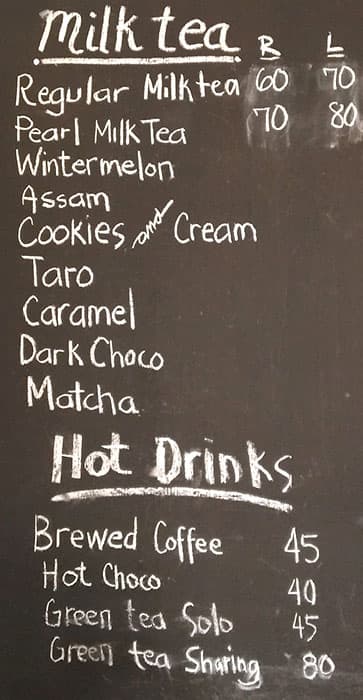 Milk tea R L
Regular Milk tea 60 70
Pearl Milk Tea 70 80
Wintermelon
Assam
Cookies and Cream
Taro
Caramel
Dark Choco
Matcha
Hot Drinks
Brewed Coffee 45
Hot Choco 40
Green tea Solo 45
Green tea Sharing 80